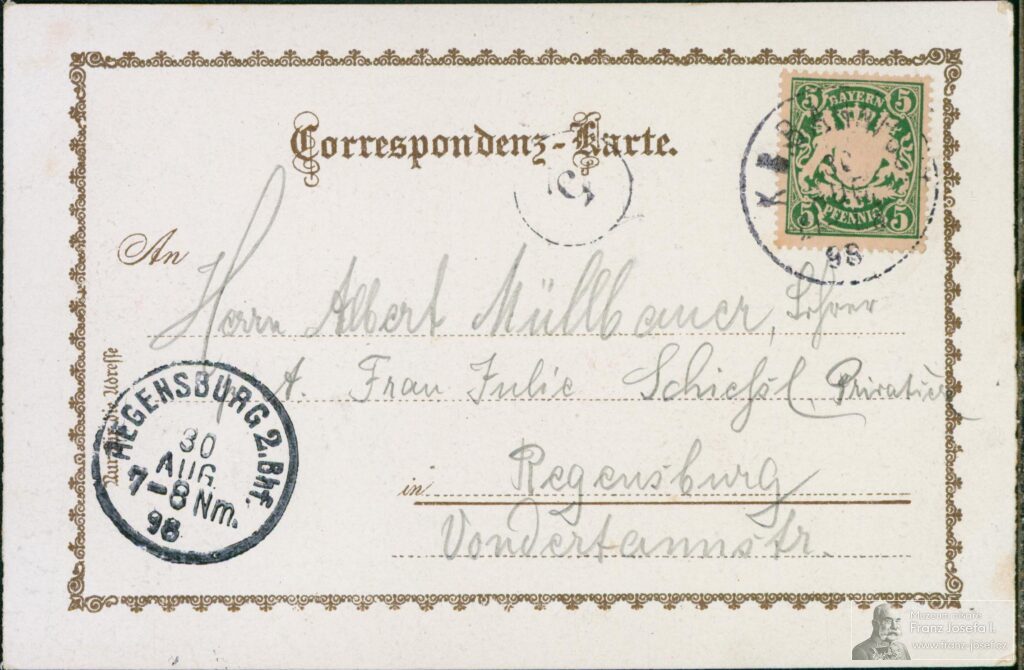 Correspondenz-Karte.
5 BAYERN 5
5 PFENNIG 5
98
An
Herrn Albert Müllbauer, Lehrer
A. Frau Julie Schießl, Privatière
Nur für die Adresse
in Regensburg
Vondertannstr.
REGENSBURG 2. Bhf.
30
AUG.
7-8 Nm.
98
Muzeum císaře
Franz Josefa I.
www.franz-josef.cz